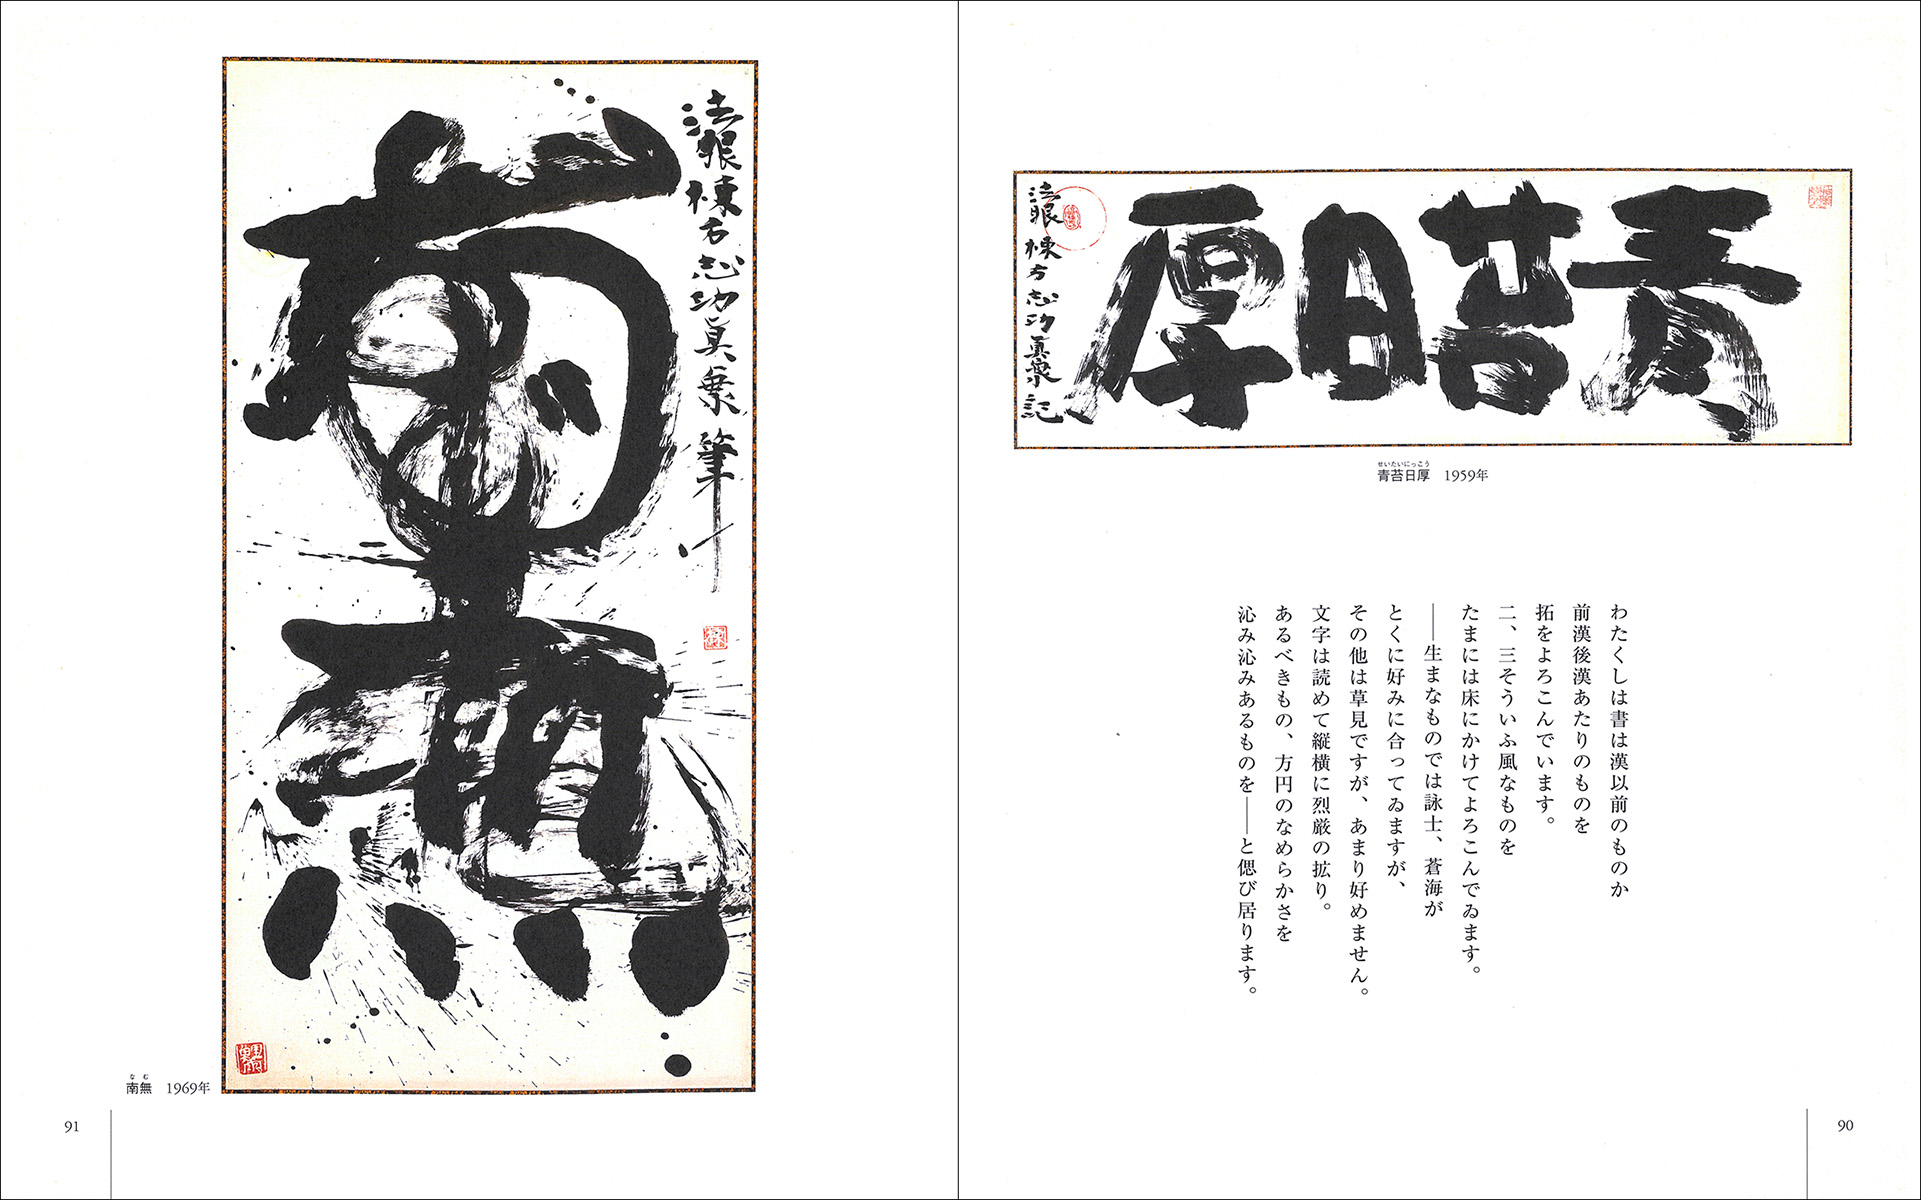 青苔日厚
法眼 棟方志功真乗 記
せいたいにっこう
青苔日厚 1959年
わたくしは書は漢以前のものか
前漢後漢あたりのものを
拓をよろこんでいます。
二、三そういふ風なものを
たまには床にかけてよろこんでゐます。
――生まなものでは詠士、蒼海が
とくに好みに合ってゐますが、
その他は草見ですが、あまり好めません。
文字は読めて縦横に烈厳の拡り。
あるべきもの、方円のなめらかさを
沁み沁みあるものを――と偲び居ります。
90
法眼 棟方志功真乗 筆
南無
なむ
南無 1969年
91